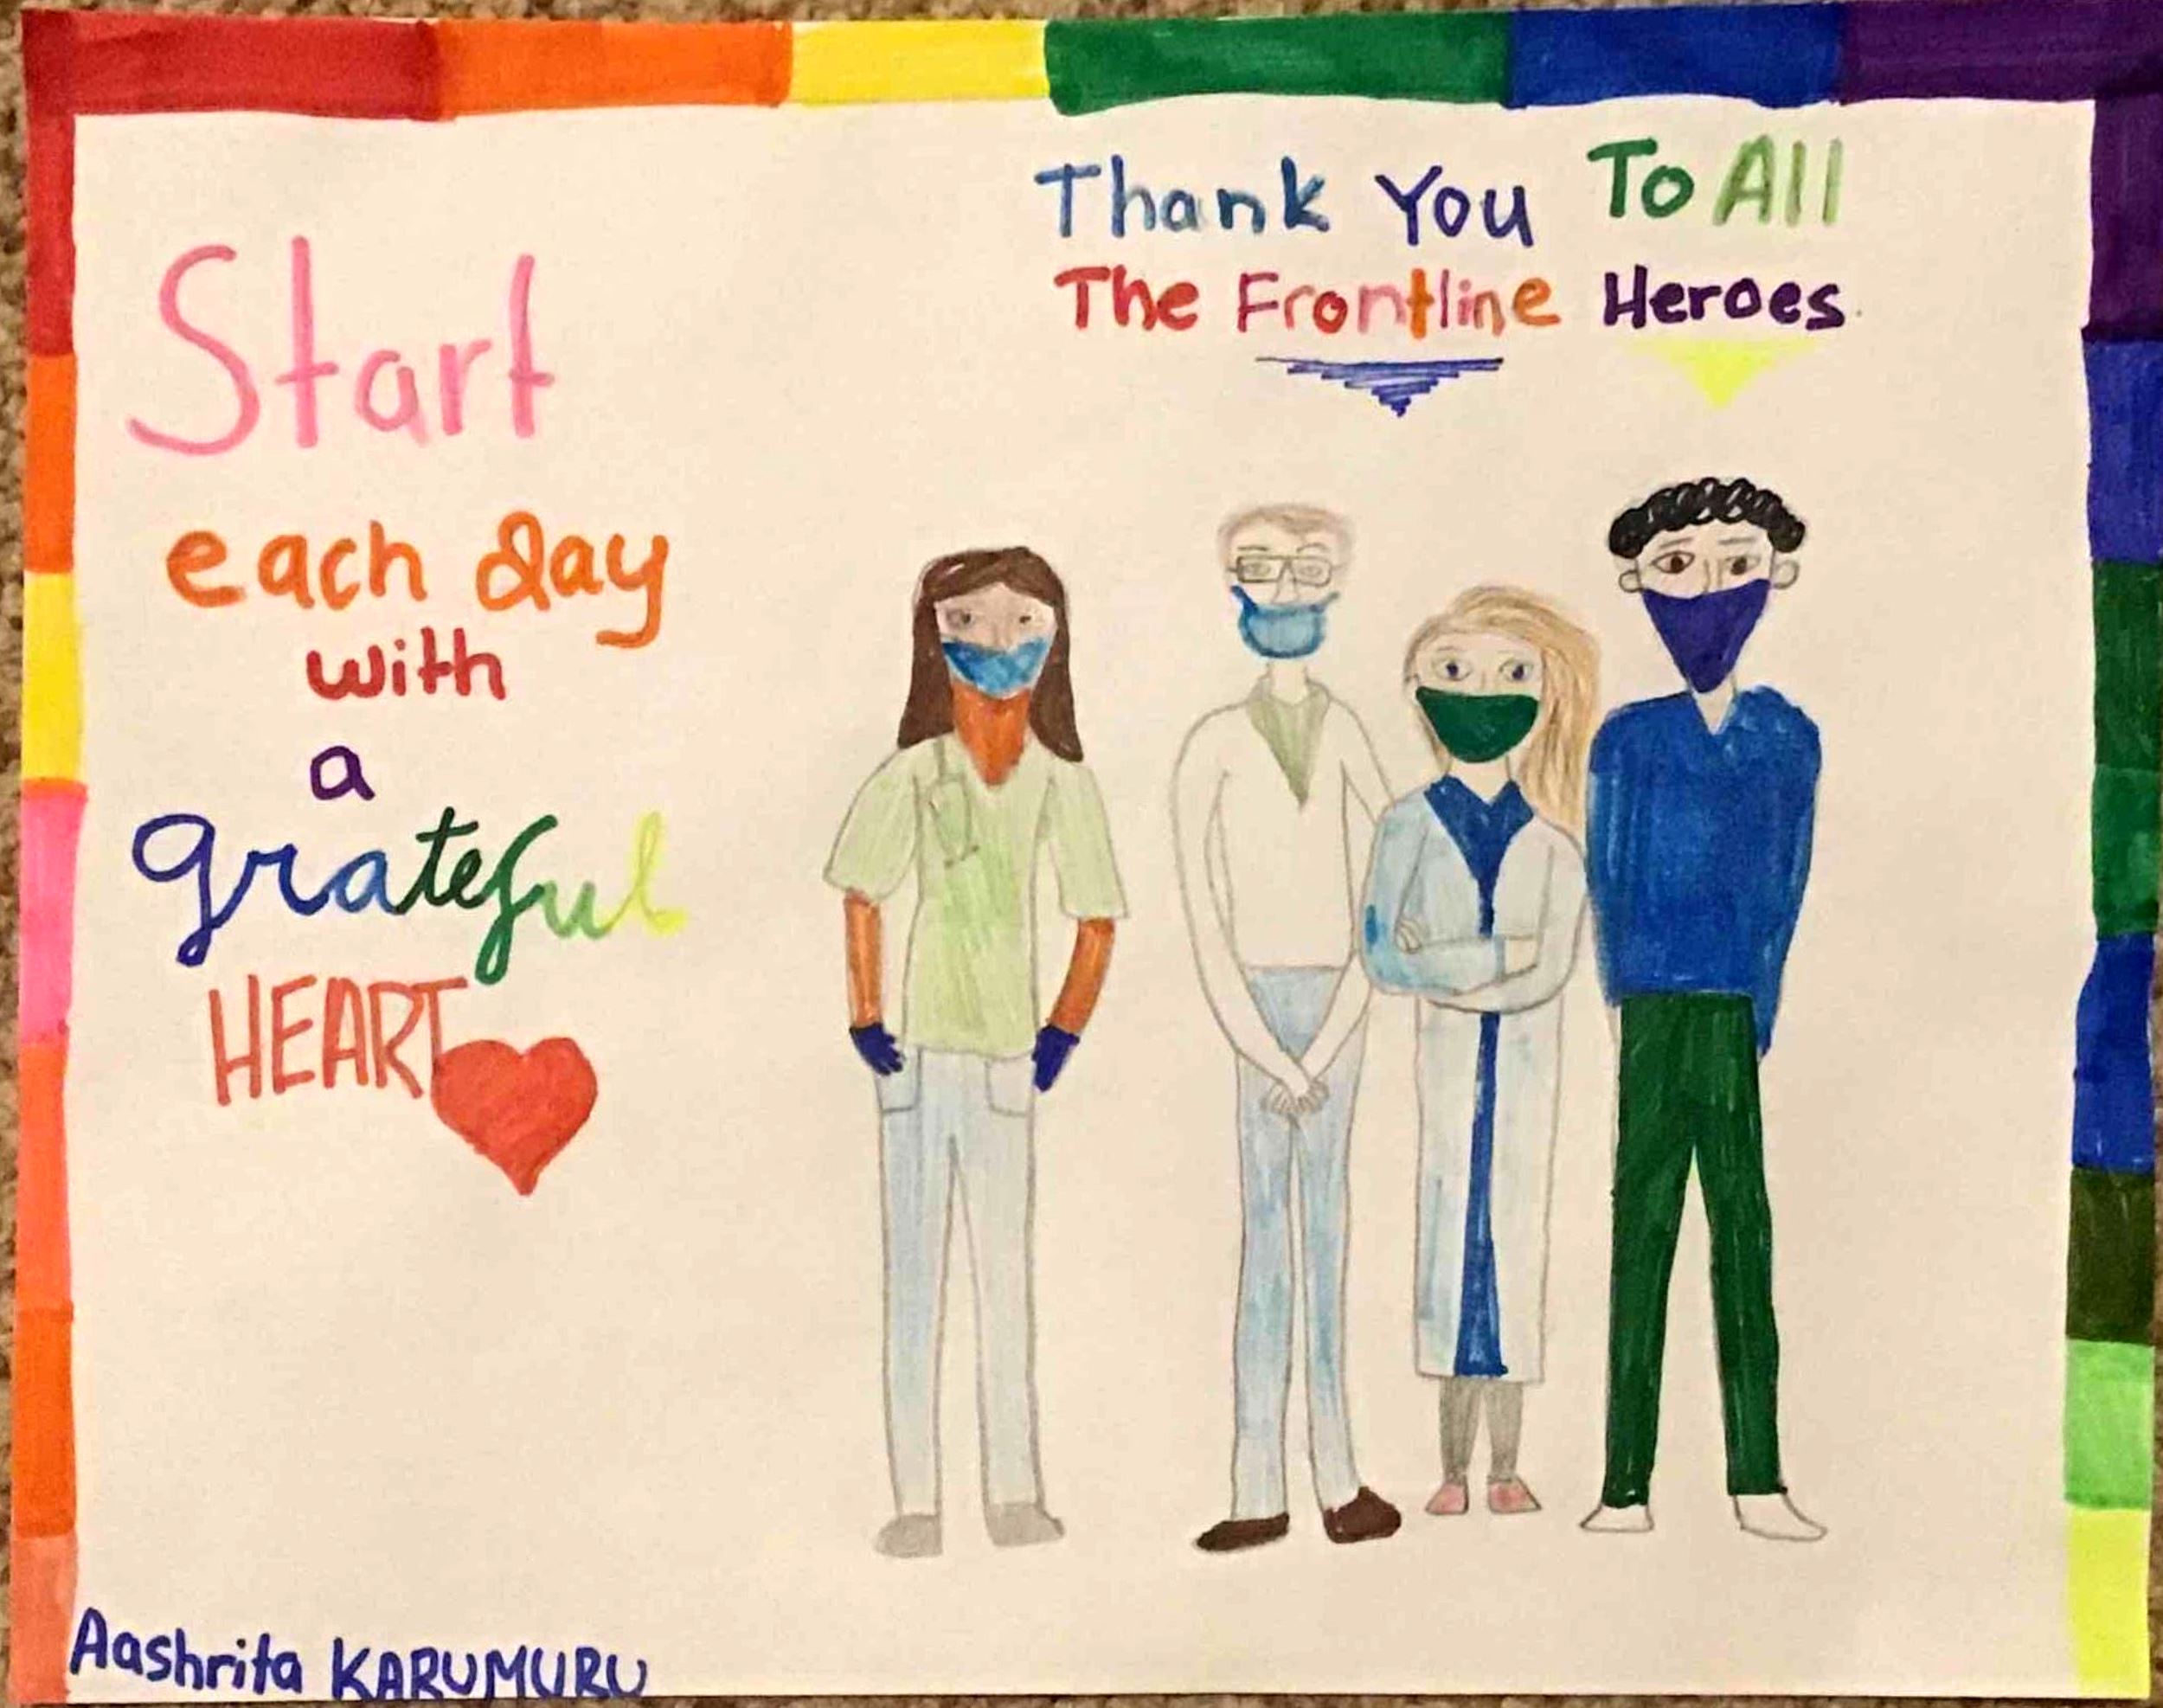 Thank You To All
The Frontline Heroes
Start
each day
with
a
grateful
HEART
Aashrita KARUMURU